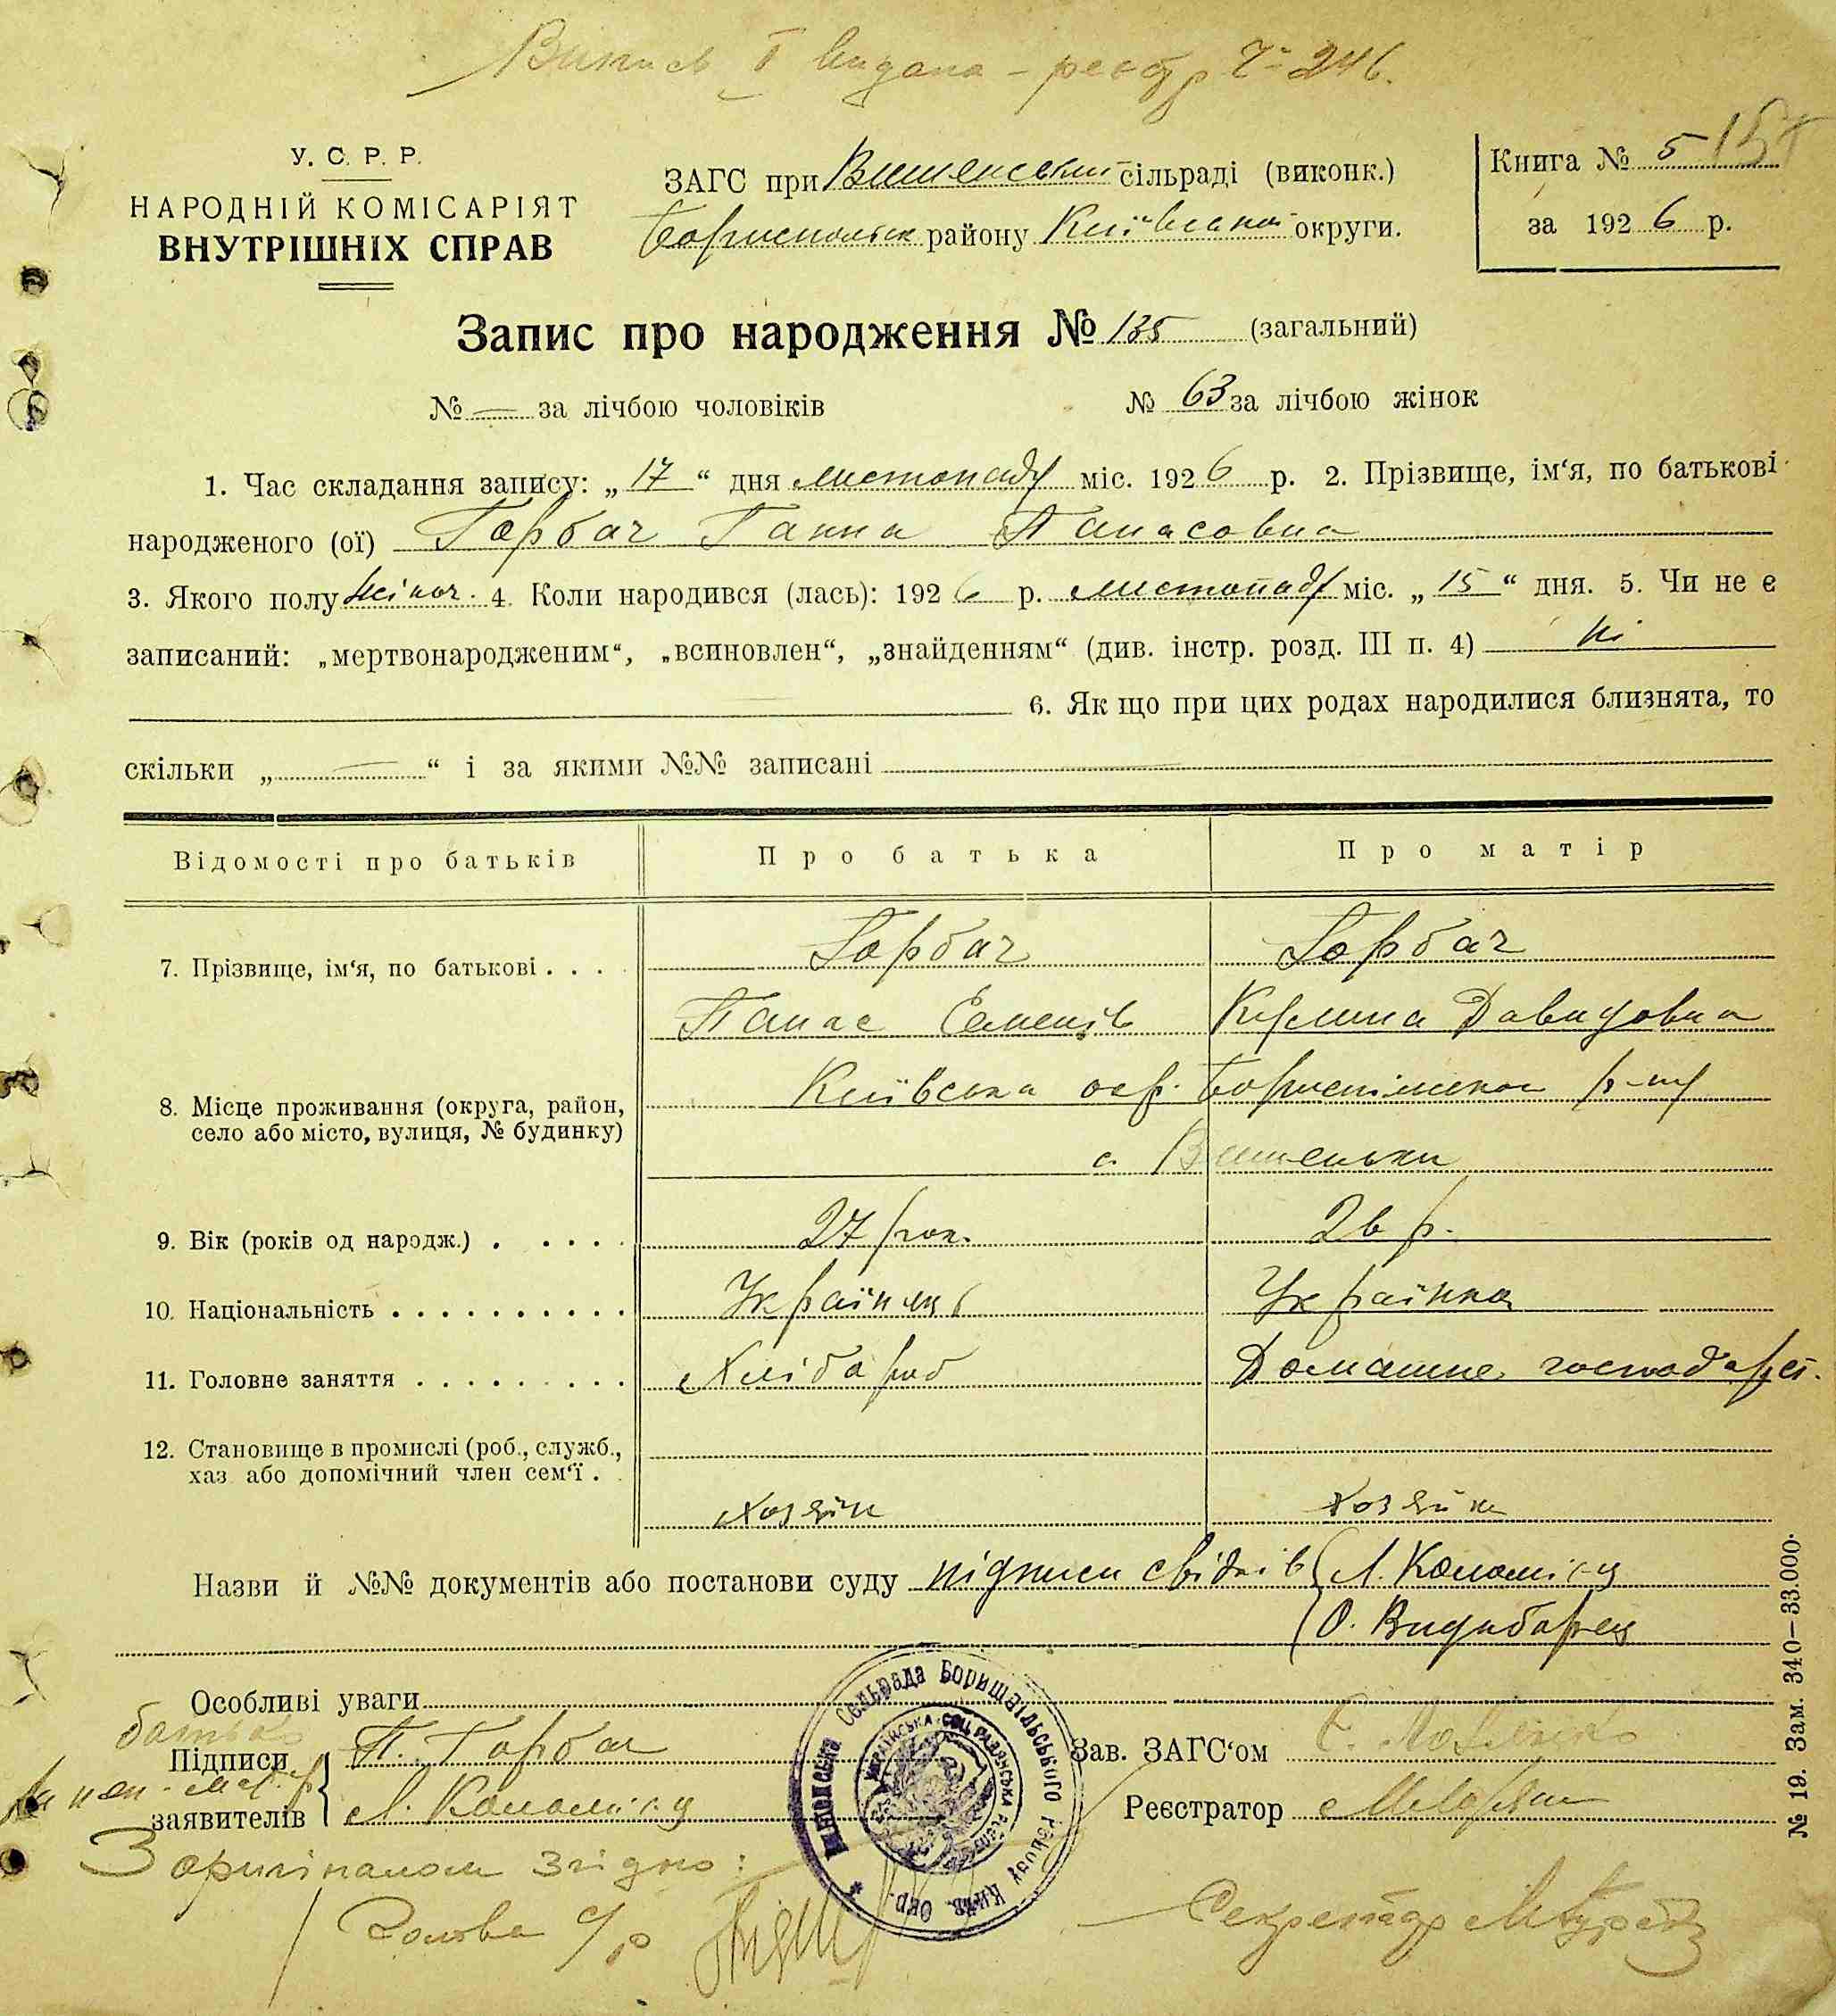 Випись видана - реєстр Ч= 246.
У. С. Р. Р.
НАРОДНІЙ КОМІСАРІЯТ
ВНУТРІШНІХ СПРАВ
ЗАГС при Вишенській сільраді (виконк.)
Бориспольськ району Київської округи.
Книга № 5
за 1926 р.
Запис про народження № 135 (загальний)
№ — за лічбою чоловіків № 63 за лічбою жінок
1. Час складання запису: „17“ дня листопаду міс. 1926 р. 2. Прізвище, ім‘я, по батькові
народженого (ої) Горбач Ганна Панасовна
3. Якого полу жіноч. 4. Коли народився (лась): 1926 р. листопаду міс. „15“ дня. 5. Чи не є
записаний: „мертвонародженим“, „всиновлен“, „знайденням“ (див. інстр. розд. III п. 4) ні
6. Як що при цих родах народилися близнята, то
скільки „—“ і за якими №№ записані —
Відомості про батьків Про батька Про матір
7. Прізвище, ім‘я, по батькові . . . . Горбач Горбач
Панас Семенів Килина Давидовна
8. Місце проживання (округа, район,
село або місто, вулиця, № будинку)
Київська окр. Бориспільськ р-ну
с. Вишеньки
9. Вік (років од народж.) . . . . . 27 рок. 26 р.
10. Національність . . . . . . . . . . Українець Українка
11. Головне заняття . . . . . . . . . Хлібороб Домашнє господарст.
12. Становище в промислі (роб., служб.,
хаз або допомічний член сем‘ї . .
Хозяїн Хозяйк
Назви й №№ документів або постанови суду підписи свідків Л. Коломієць
О. Видиборец
Особливі уваги
батько
Підписи
заявителів
П. Горбач
Л. Коломієць
Зав. ЗАГС‘ом
Реєстратор
З оригіналом згідно:
Голова с/р
Секретар
Сельрада Боришпільського Району Київ. Окр.
УКРАЇНСЬКА СОЦ. РАДЯНСЬКА РЕСП.
№ 19. Зам. 340—33.000.